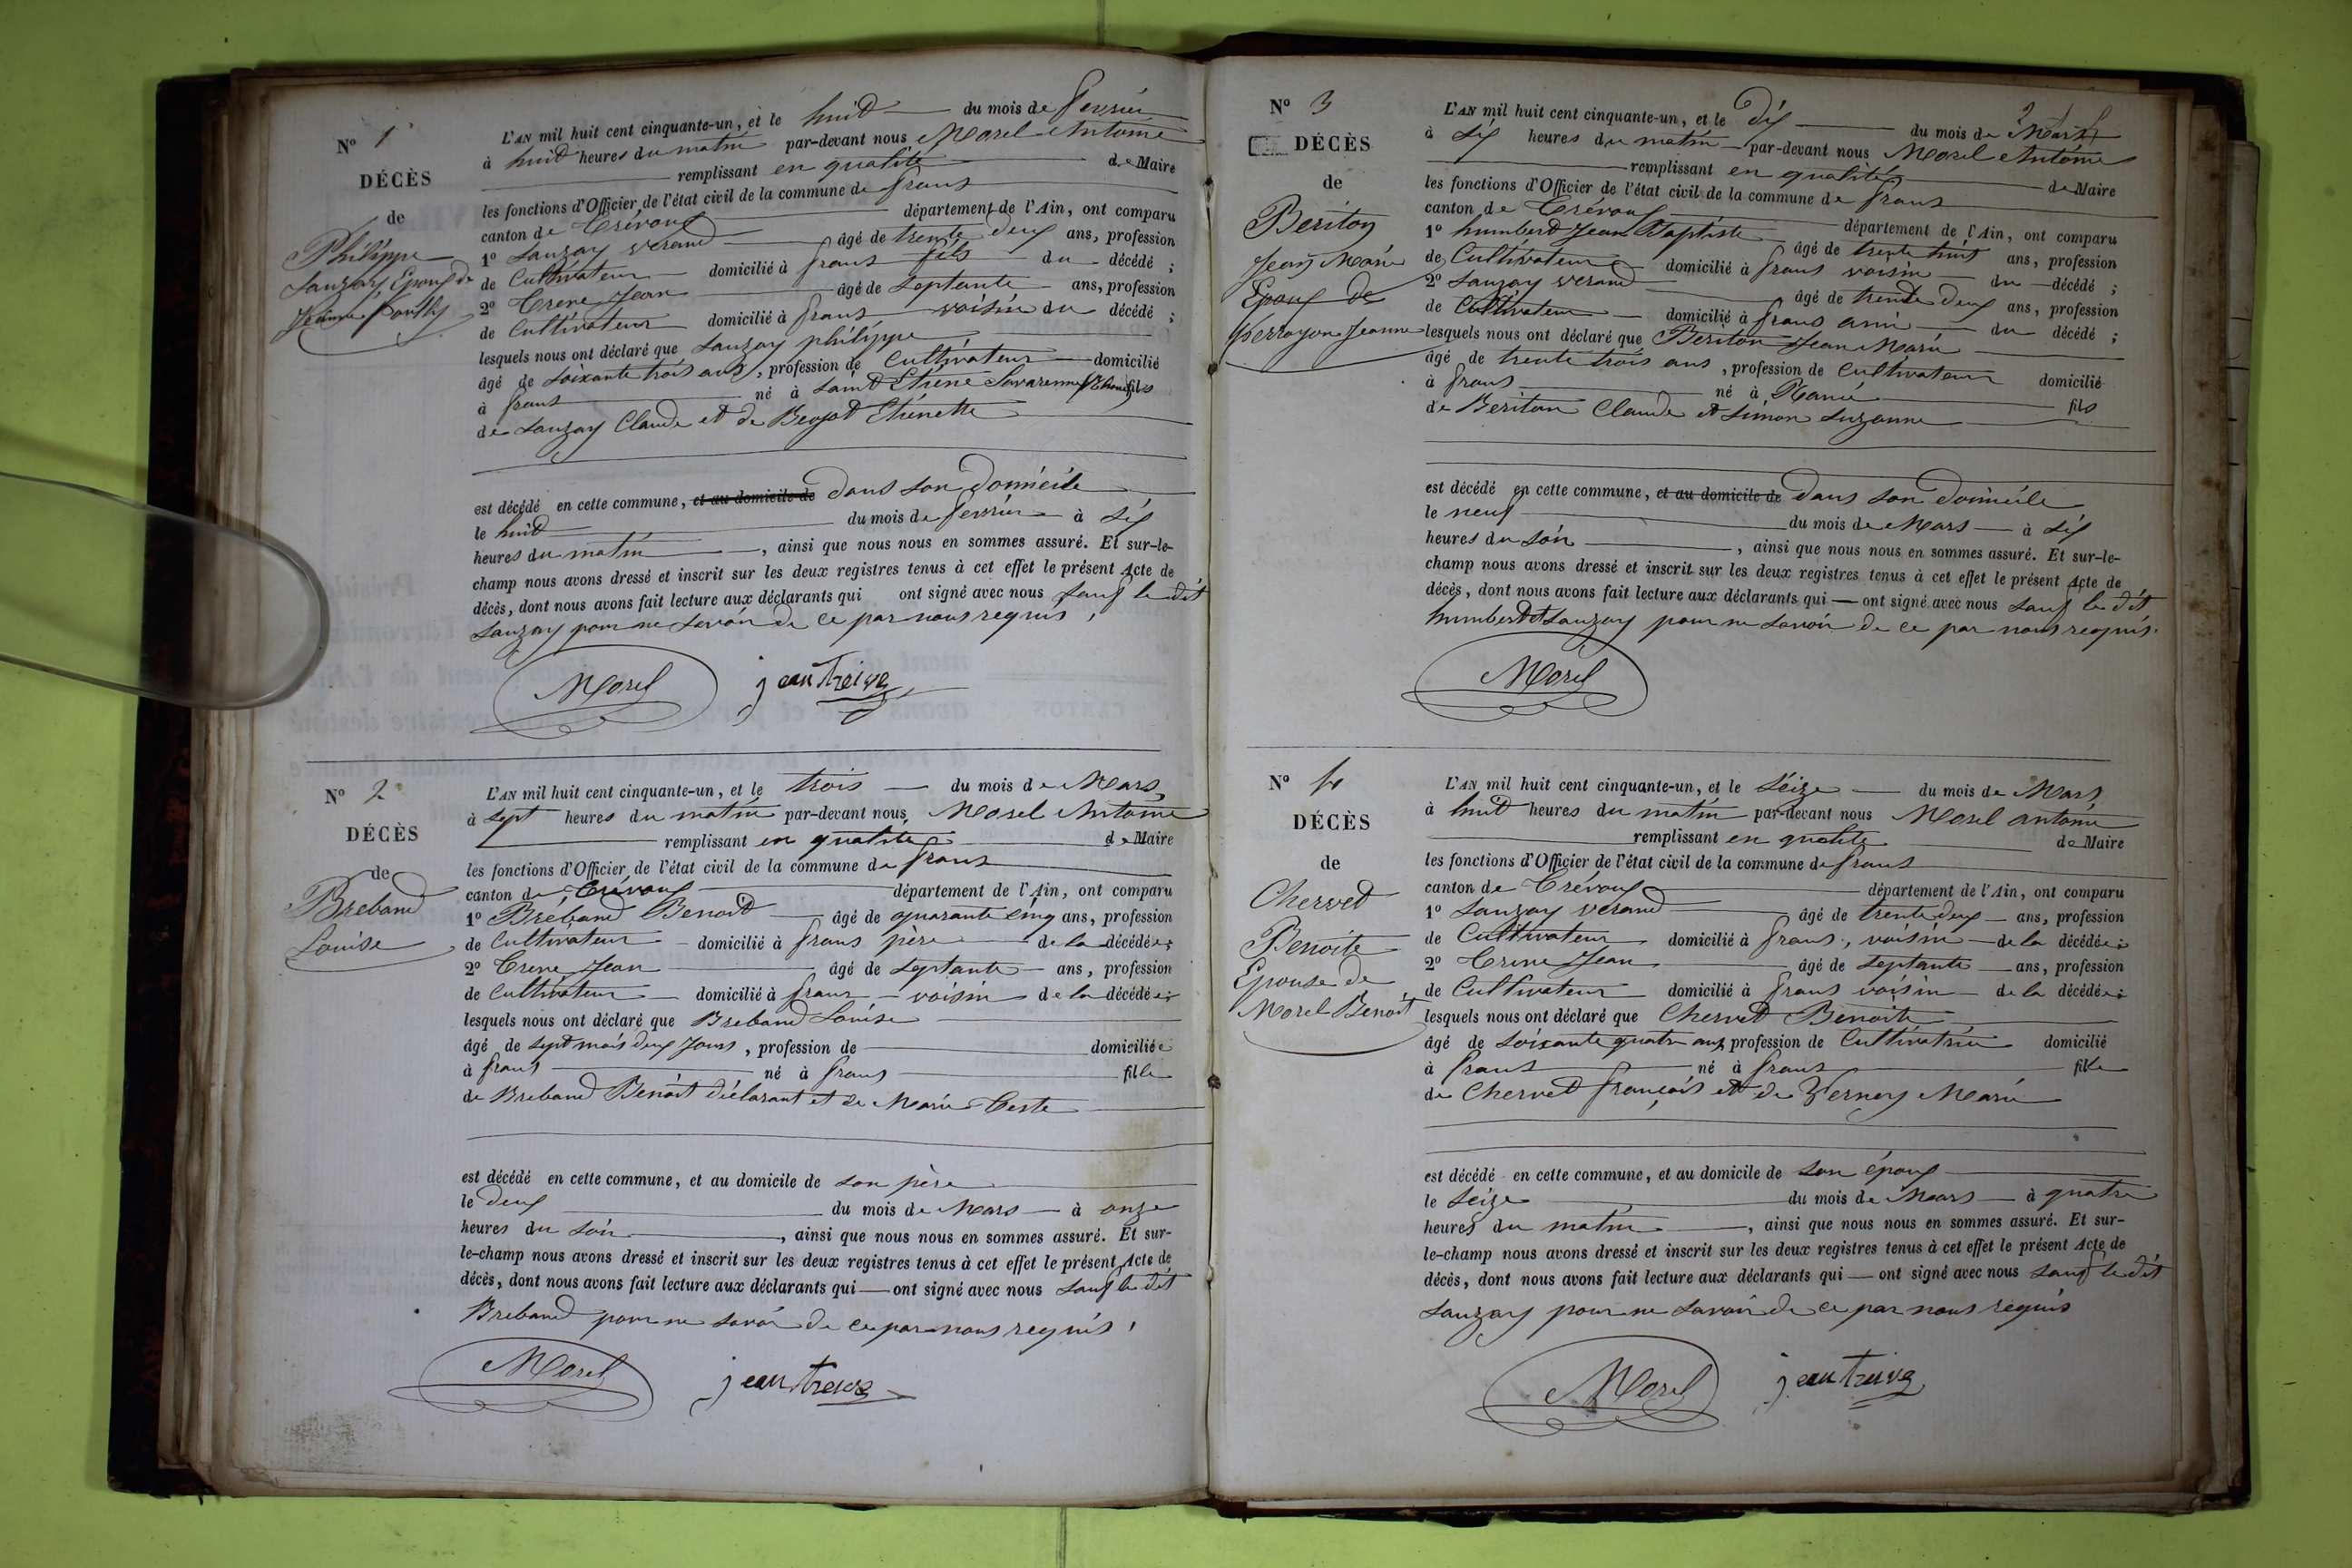 N° 1
DÉCÈS
de
Philippe
Sauzay, Epoux de
Jeanne
L'AN mil huit cent cinquante-un, et le huit du mois de fevrier
à huit heures du matin par-devant nous Morel Antoine
remplissant en qualité de Maire
les fonctions d'Officier de l'état civil de la commune de frans
canton de Trévoux département de l'Ain, ont comparu
1° Sauzay Verand âgé de trente deux ans, profession
de Cultivateur domicilié à frans fils du décédé ;
2° Jean âgé de septante ans, profession
de Cultivateur domicilié à frans voisin du décédé ;
lesquels nous ont déclaré que Sauzay philippe
âgé de soixante trois ans, profession de Cultivateur domicilié
à frans né à saint (Rhone) fils
de Sauzay Claude et de Etienette
est décédé en cette commune, et au domicile de dans son Domicile
le huit du mois de fevrier à six
heures du matin, ainsi que nous nous en sommes assuré. Et sur-le-
champ nous avons dressé et inscrit sur les deux registres tenus à cet effet le présent Acte de
décès, dont nous avons fait lecture aux déclarants qui ont signé avec nous sauf le dit
Sauzay pour ne savoir de ce par nous requis,
Morel jean treive
N° 2
DÉCÈS
de
Breband
Louise
L'AN mil huit cent cinquante-un, et le trois du mois de Mars,
à sept heures du matin par-devant nous Morel Antoine
remplissant en qualité de Maire
les fonctions d'Officier de l'état civil de la commune de frans
canton de Trévoux département de l'Ain, ont comparu
1° Bréband Benoit âgé de quarante cinq ans, profession
de Cultivateur domicilié à frans père de la décédée ;
2° Jean âgé de septante ans, profession
de Cultivateur domicilié à frans voisin de la décédée ;
lesquels nous ont déclaré que Breband Louise
âgé de sept mois deux Jours, profession de domiciliée
à frans né à frans fille
de Breband Benoit déclarant et de Marie Teste
est décédé en cette commune, et au domicile de son père
le deux du mois de Mars à onze
heures du soir, ainsi que nous nous en sommes assuré. Et sur-
le-champ nous avons dressé et inscrit sur les deux registres tenus à cet effet le présent Acte de
décès, dont nous avons fait lecture aux déclarants qui ont signé avec nous sauf le dit
Breband pour ne savoir de ce par nous requis,
Morel jean treive
N° 3
DÉCÈS
de
Beriton
Jean Marie
Epoux de
Perroyon Jeanne
2
L'AN mil huit cent cinquante-un, et le dix du mois de Mars
à six heures du matin par-devant nous Morel Antoine
remplissant en qualité de Maire
les fonctions d'Officier de l'état civil de la commune de frans
canton de Trévoux département de l'Ain, ont comparu
1° humbert Jean Baptiste âgé de trente huit ans, profession
de Cultivateur domicilié à frans voisin du décédé ;
2° Sauzay Verand âgé de trente deux ans, profession
de Cultivateur domicilié à frans ami du décédé ;
lesquels nous ont déclaré que Beriton Jean Marie
âgé de trente trois ans, profession de Cultivateur domicilié
à frans né à fils
de Beriton Claude et Simon Suzanne
est décédé en cette commune, et au domicile de dans son Domicile
le neuf du mois de Mars à six
heures du soir, ainsi que nous nous en sommes assuré. Et sur-le-
champ nous avons dressé et inscrit sur les deux registres tenus à cet effet le présent Acte de
décès, dont nous avons fait lecture aux déclarants qui ont signé avec nous sauf les dit
humbert et Sauzay pour ne savoir de ce par nous requis.
Morel
N° 4
DÉCÈS
de
Chervet
Benoite
Epouse de
Morel Benoit
L'AN mil huit cent cinquante-un, et le seize du mois de Mars
à huit heures du matin par-devant nous Morel antoine
remplissant en qualité de Maire
les fonctions d'Officier de l'état civil de la commune de frans
canton de Trévoux département de l'Ain, ont comparu
1° Sauzay Verand âgé de trente deux ans, profession
de Cultivateur domicilié à frans, voisin de la décédée ;
2° Jean âgé de septante ans, profession
de Cultivateur domicilié à frans voisin de la décédée ;
lesquels nous ont déclaré que Chervet Benoite
âgé de soixante quatre ans, profession de Cultivatrice domicilié
à frans né à frans fille
de Chervet françois et de Verney Marie
est décédé en cette commune, et au domicile de son époux
le seize du mois de Mars à quatre
heures du matin, ainsi que nous nous en sommes assuré. Et sur-
le-champ nous avons dressé et inscrit sur les deux registres tenus à cet effet le présent Acte de
décès, dont nous avons fait lecture aux déclarants qui ont signé avec nous sauf le dit
Sauzay pour ne savoir de ce par nous requis
Morel jean treive